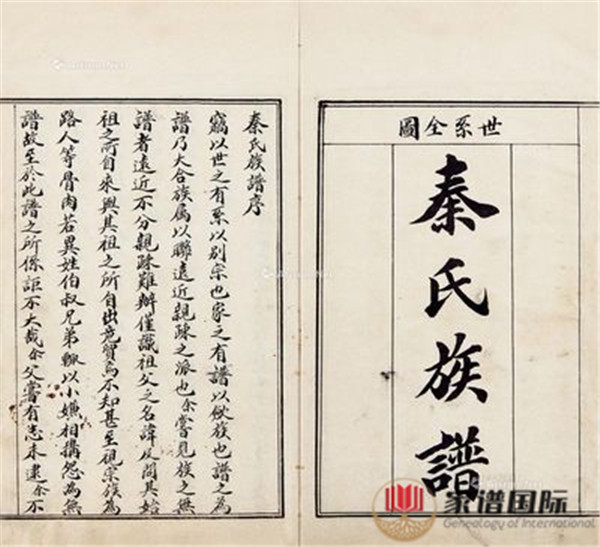 世系全圖
秦氏族譜
秦氏族譜序
竊以世之有系以別宗也家之有譜以收族也譜之為
譜乃大合族属以聯遠近親疎之派也余嘗見族之無
譜者遠近不分親疎難辦僅識祖父之名諱及問其始
祖之所自來與其祖之所自出茫貿焉不知甚至視宗族為
路人等骨肉若異姓伯叔兄弟輒以小嫌相搆怨為無
譜故至於此譜之所係詎不大哉余父嘗有志未逮余不
家谱国际
Genealogy of International